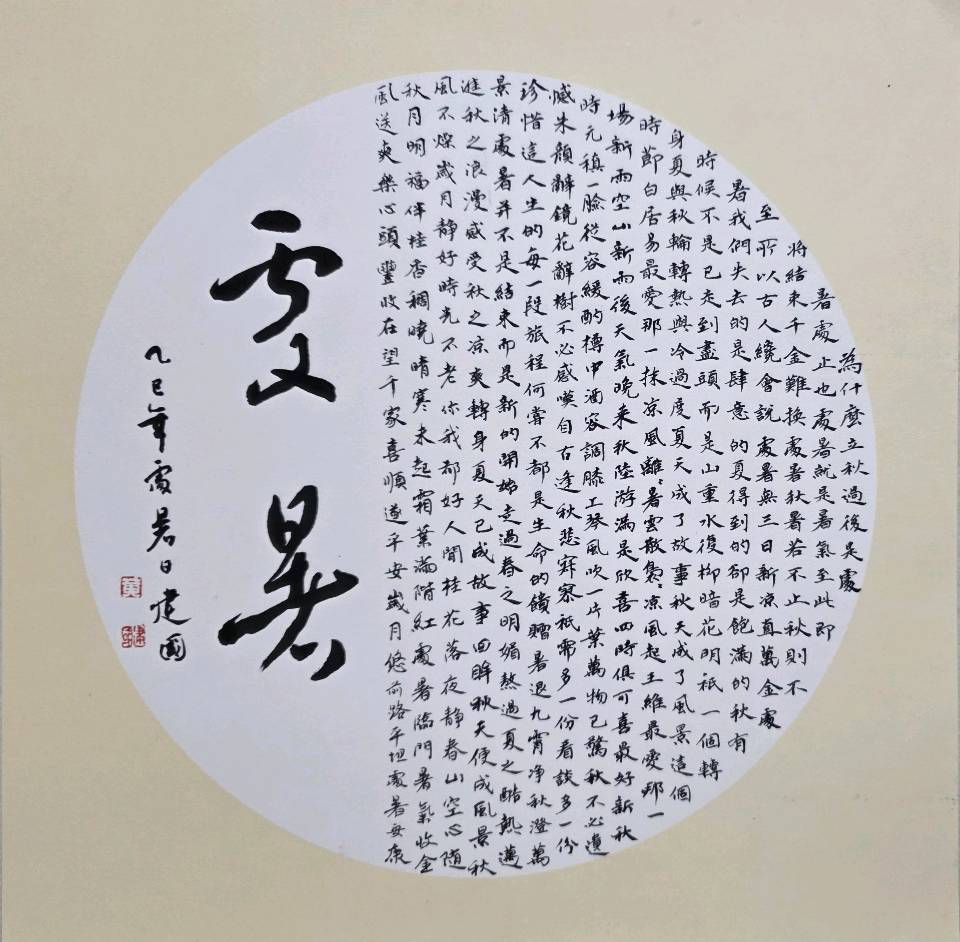 為什麼立秋過後是處
暑處止也處暑就是暑氣至此即
將結束千金難換處暑秋暑若不止秋則不
至所以古人纔會說處暑無三日新凉直萬金處
暑我們失去的是肆意的夏得到的卻是飽滿的秋有
時候不是已走到盡頭而是山重水復柳暗花明祇一個轉
身夏與秋輪轉熱與冷過度夏天成了故事秋天成了風景這個
時節白居易最愛那一抹凉風離離暑雲散裊裊凉風起王維最愛那一
場新雨空山新雨後天氣晚來秋陸游滿是欣喜四時俱可喜最好新秋
時元稹一臉從容緩酌樽中酒容調膝上琴風吹一片葉萬物已驚秋不必遺
憾朱顏辭鏡花辭樹不必感嘆自古逢秋悲寂寥祇需多一份看談多一份
珍惜這人生的每一段旅程何嘗不都是生命的饋贈暑退九霄净秋澄萬
景清處暑并不是結束而是新的開始走過春之明媚熬過夏之酷熱邁
進秋之浪漫感受秋之凉爽轉身夏天已成故事回眸秋天便成風景秋
風不燥歲月靜好時光不老你我都好人閒桂花落夜静春山空心随
秋月明福伴桂香稠曉晴寒未起霜葉滿階紅處暑臨門暑氣收金
風送爽樂心頭豐收在望千家喜順遂平安歲月悠前路平坦處暑安康
處暑
乙巳年處暑日建國